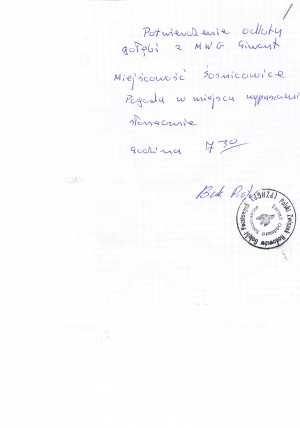 Potwierdzenie odlotu
gołębi z MWG Giwant
Miejscowość Sośnicowice
Pogoda w miejscu wypuszczenia
słonecznie
godzina 7 30
Polski Związek Hodowców Gołębi Pocztowych (PZHGP)